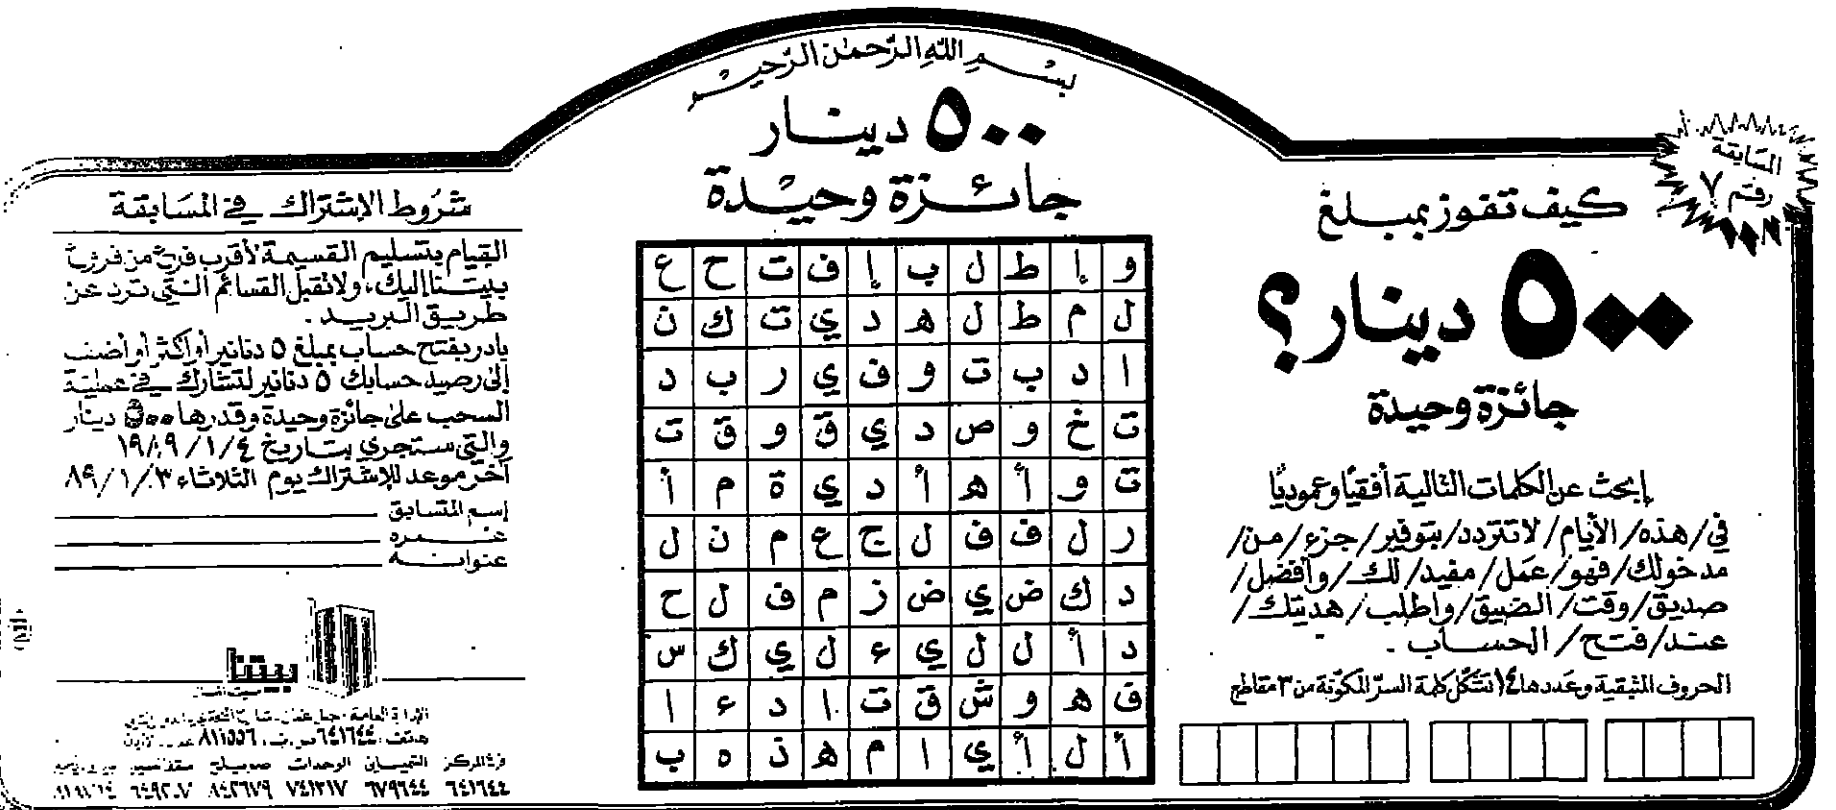 بسم الله الرحمن الرحيم
٥٠٠ دينار
جائزة وحيدة
المسابقة
رقم ٧
كيف تفوز بمبلغ
٥٠٠ دينار؟
جائزة وحيدة
إبحث عن الكلمات التالية أفقيًا وعموديًا
في/هذه/الأيام/لا تتردد/بتوفير/جزء/من/
مدخولك/فهو/عمل/مفيد/لك/وأفضل/
صديق/وقت/الضيق/واطلب/هديتك/
عند/فتح/الحساب .
الحروف المتبقية وعددها ١٤ تشكل كلمة السر المكونة من ٣ مقاطع
و إ ط ل ب إ ف ت ح ع
ل م ط ل ه د ي ت ك ن
ا د ب ت و ف ي ر ب د
ت خ و ص د ي ق و ق ت
ت و أ ه أ د ي ة م أ
ر ل ف ف ل ج ع م ن ل
د ك ض ي ض ز م ف ل ح
د أ ل ل ي ء ل ي ك س
ف ه و ش ق ت ا د ء ا
أ ل أ ي ا م ه ذ ه ب
شروط الإشتراك في المسابقة
القيام بتسليم القسيمة لأقرب فرع من فروع
بيتنا إليك، ولا تقبل القسائم التي ترد عن
طريق البريد .
بادر بفتح حساب بمبلغ ٥ دنانير أو أكثر أو أضف
إلى رصيد حسابك ٥ دنانير لتشارك في عملية
السحب على جائزة وحيدة وقدرها ٥٠٠ دينار
والتي ستجري بتاريخ ١٩٨٩/١/٤
آخر موعد للإشتراك يوم الثلاثاء ٨٩/١/٣
إسم المتسابق
عمره
عنوانه
بيتنا
هاتف : ٦٤١٦٤٤ ص.ب.
فرع المركز الوحدات صويلح
٦٤١٦٤٤ ٦٧٩٦٤٤ ٧٤١٣١٧ ٨٤٢٦٧٩